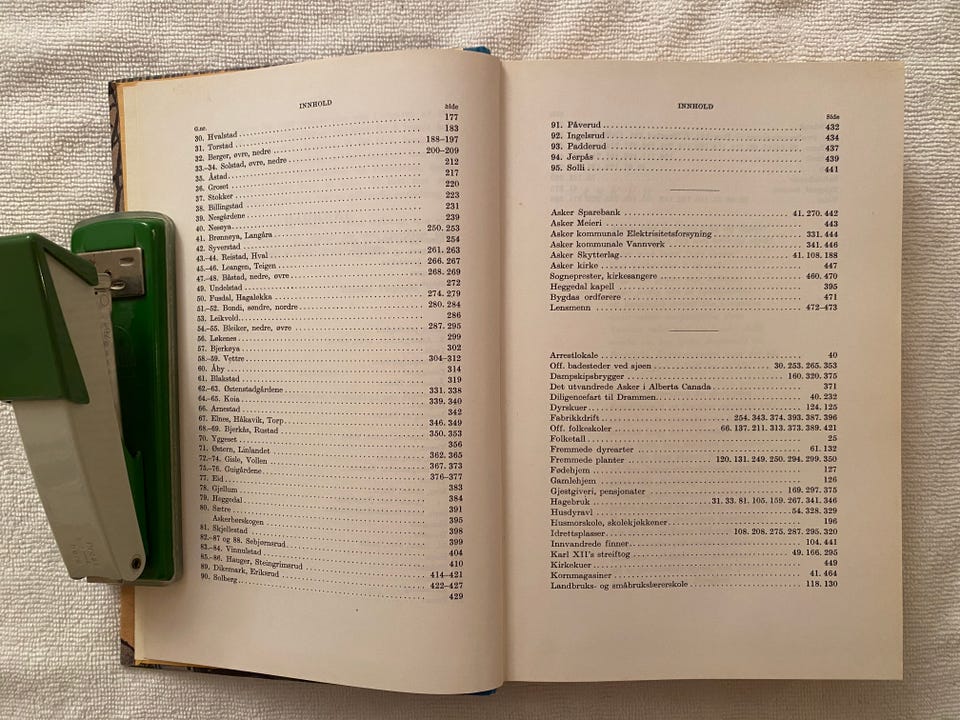 INNHOLD
G.nr. Side
30. Hvalstad 177
31. Torstad 183
32. Berger, øvre, nedre 188–197
33.–34. Solstad, øvre, nedre 200–209
35. Åstad 212
36. Groset 217
37. Stokker 220
38. Billingstad 223
39. Nesgårdene 231
40. Nesøya 239
41. Brønnøya, Langåra 250. 253
42. Syverstad 254
43.–44. Reistad, Hval 261. 263
45.–46. Leangen, Teigen 266. 267
47.–48. Båstad, nedre, øvre 268. 269
49. Undelstad 272
50. Fusdal, Hagaløkka 274. 279
51.–52. Bondi, søndre, nordre 280. 284
53. Leikvold 286
54.–55. Bleiker, nedre, øvre 287. 295
56. Løkenes 299
57. Bjerkøya 302
58.–59. Vettre 304–312
60. Åby 314
61. Blakstad 319
62.–63. Østenstadgårdene 331. 338
64.–65. Koia 339. 340
66. Arnestad 342
67. Elnes, Håkavik, Torp 346. 349
68.–69. Bjerkås, Rustad 350. 353
70. Yggeset 356
71. Østern, Linlandet 362. 365
72.–74. Gisle, Vollen 367. 373
75.–76. Guigårdene 376–377
77. Eid 383
78. Gjellum 384
79. Heggedal 391
80. Sætre 395
Askerbørskogen 398
81. Skjellestad 399
82.–87 og 88. Sebjørnsrud 404
83.–84. Vinnulstad 410
85.–86. Hauger, Steingrimsrud 414–421
89. Dikemark, Eriksrud 422–427
90. Solberg 429
INNHOLD
Side
91. Påverud 432
92. Ingelsrud 434
93. Padderud 437
94. Jerpås 439
95. Solli 441
Asker Sparebank 41. 270. 442
Asker Meieri 443
Asker kommunale Elektrisitetsforsyning 331. 444
Asker kommunale Vannverk 341. 446
Asker Skytterlag 41. 108. 188
Asker kirke 447
Sogneprester, kirkesangere 460. 470
Heggedal kapell 395
Bygdas ordførere 471
Lensmenn 472–473
Arrestlokale 40
Off. badesteder ved sjøen 30. 253. 265. 353
Dampskipsbrygger 160. 320. 375
Det utvandrede Asker i Alberta Canada 371
Diligencefart til Drammen 40. 232
Dyrskuer 124. 125
Fabrikkdrift 254. 343. 374. 393. 387. 396
Off. folkeskoler 66. 137. 211. 313. 373. 389. 421
Folketall 25
Fremmede dyrearter 61. 132
Fremmede planter 120. 131. 249. 250. 294. 299. 350
Fødehjem 127
Gamlehjem 126
Gjestgiveri, pensjonater 169. 297. 375
Hagebruk 31. 33. 81. 105. 159. 267. 341. 346
Husdyravl 54. 328. 329
Husmorskole, skolekjøkkener 196
Idrettsplasser 108. 208. 275. 287. 295. 320
Innvandrede finner 104. 441
Karl XII's streiftog 49. 166. 295
Kirkekuer 449
Kornmagasiner 41. 464
Landbruks- og småbrukslærerskole 118. 130